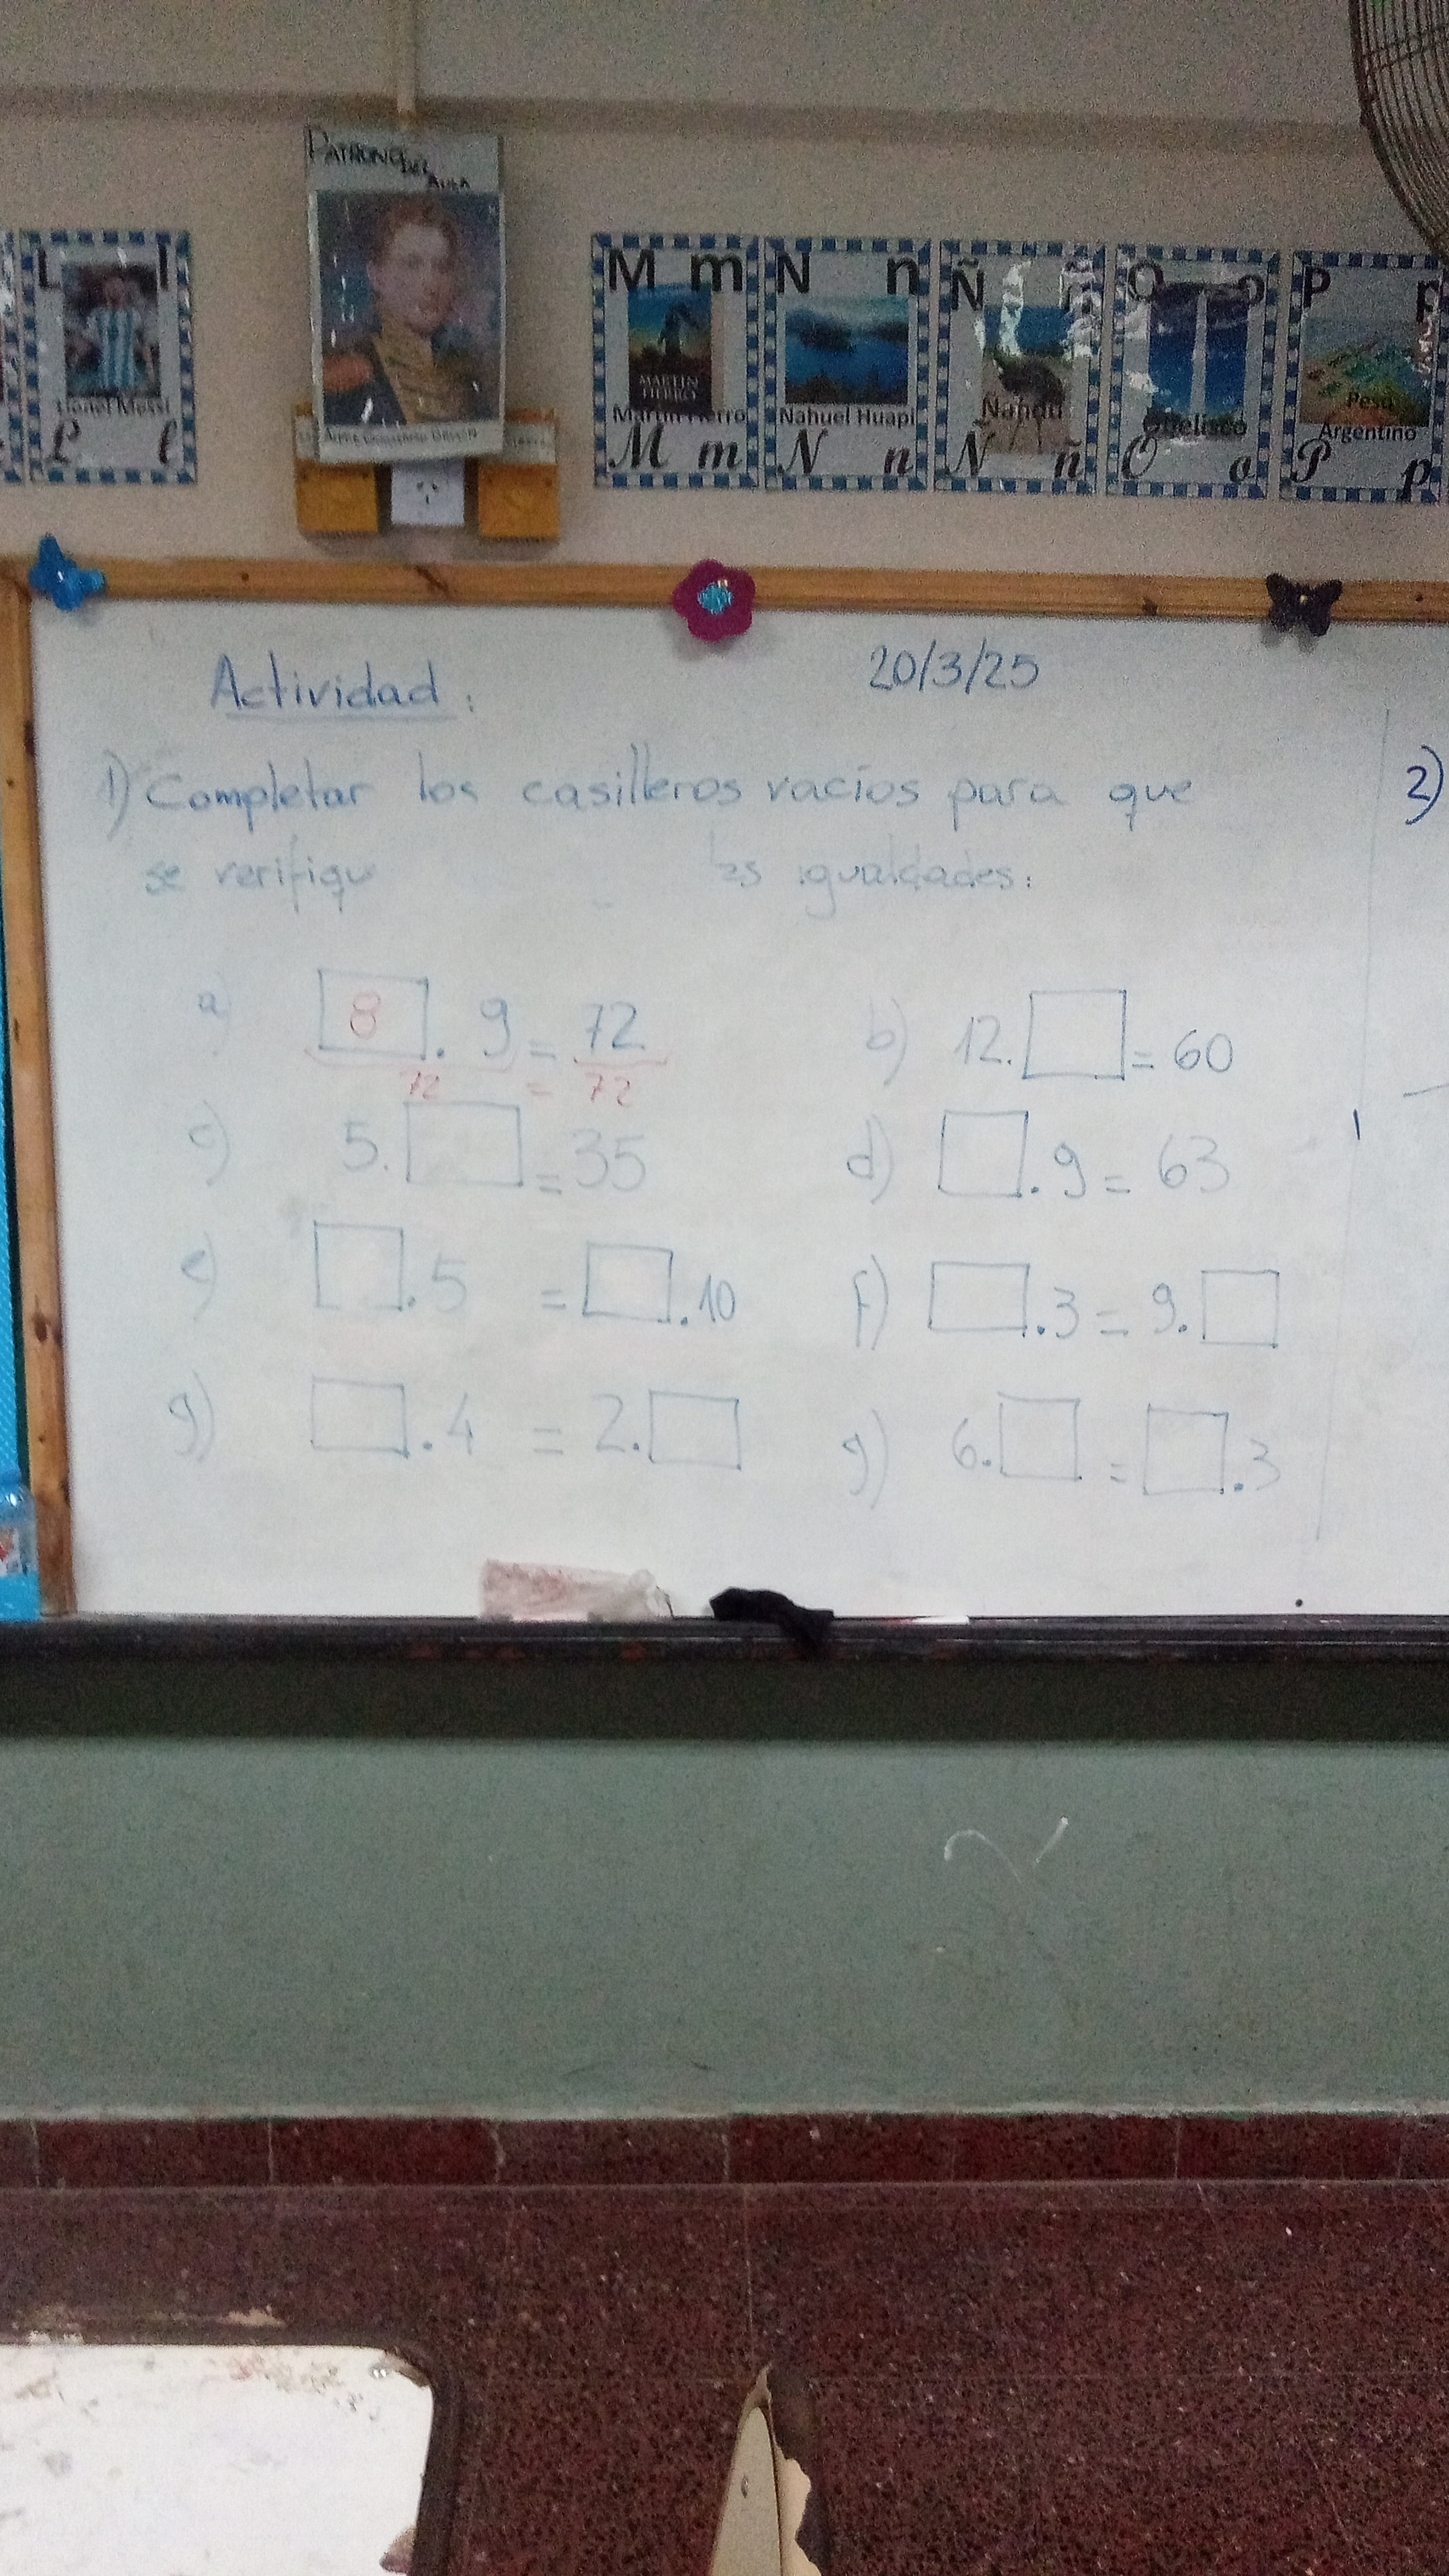 PATRONO DEL AULA
L l
Lionel Messi
L l
M m
MARTIN FIERRO
Martín Fierro
M m
N n
Nahuel Huapi
N n
Ñ ñ
Ñandú
Ñ ñ
O o
Obelisco
O o
P p
Peso Argentino
P p
Actividad: 20/3/25
1) Completar los casilleros vacíos para que
se verifiqu las igualdades:
a) 8 . 9 = 72
72 = 72
b) 12. = 60
c) 5. = 35
d) . 9 = 63
e) . 5 = . 10
f) . 3 = 9.
g) . 4 = 2.
g) 6. = . 3
2)